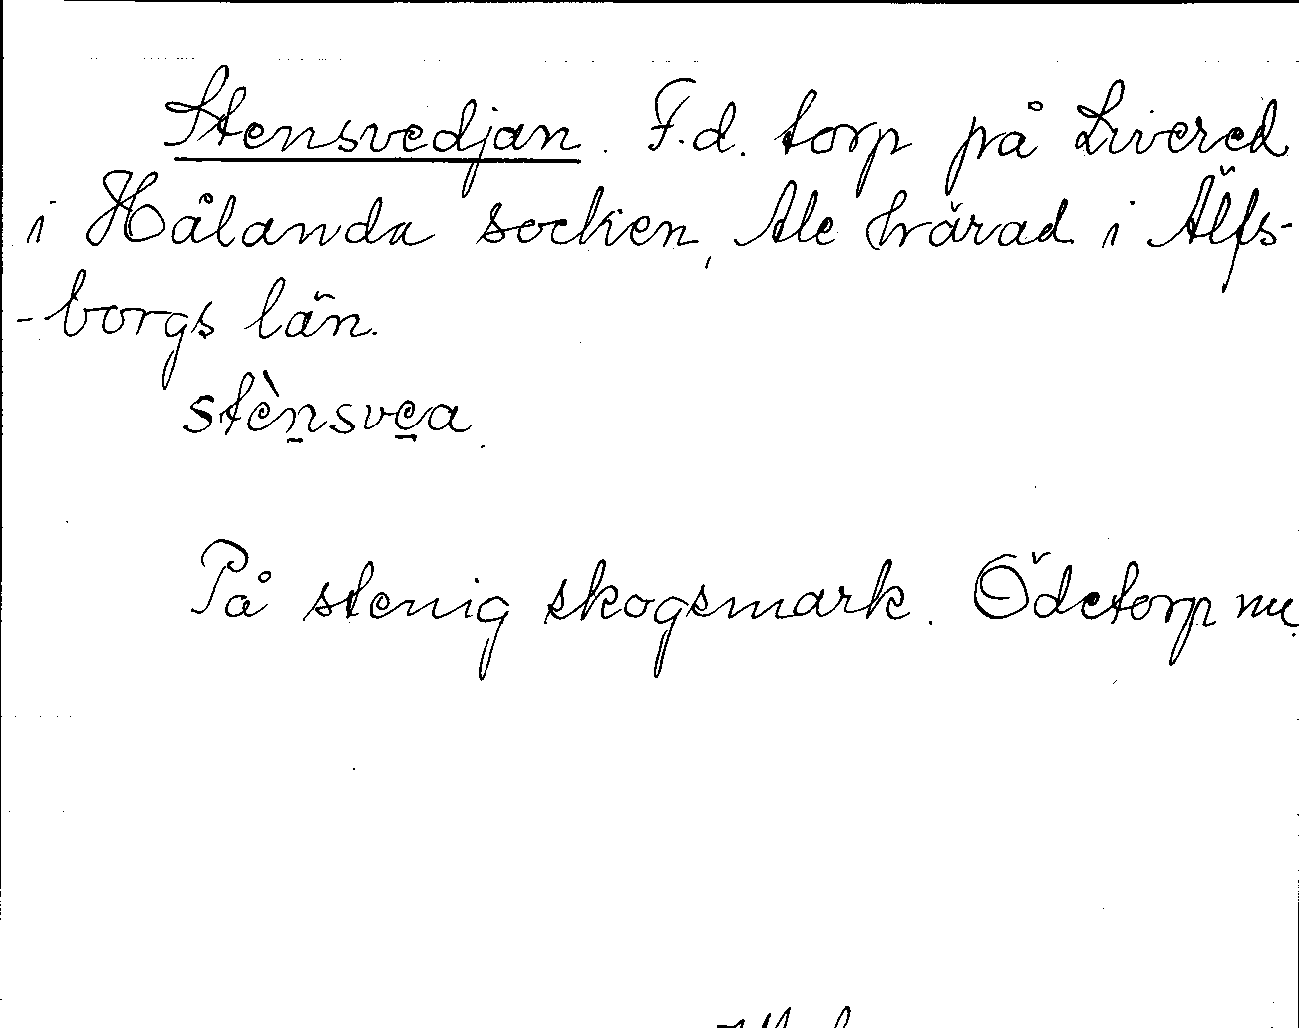 Stensvedjan. F.d. torp på Livered
i Hålanda socken, Ale härad i Älfs-
-borgs län.
stènsvea.
På stenig skogsmark. Ödetorp nu.